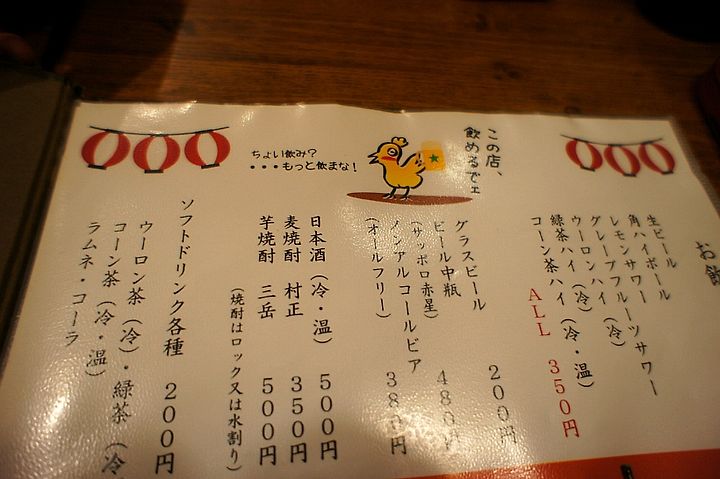 お飲
生ビール
角ハイボール
レモンサワー
グレープフルーツサワー
ウーロンハイ(冷)
緑茶ハイ(冷・温)
コーン茶ハイ
ALL 350円
この店、
飲めるでェ
ちょい飲み?
・・・もっと飲まな!
グラスビール 200円
ビール中瓶 480円
(サッポロ赤星)
ノンアルコールビア 380円
(オールフリー)
日本酒(冷・温) 500円
麦焼酎 村正 350円
芋焼酎 三岳 500円
(焼酎はロック又は水割り)
ソフトドリンク各種 200円
ウーロン茶(冷)・緑茶(冷
コーン茶(冷・温)
ラムネ・コーラ